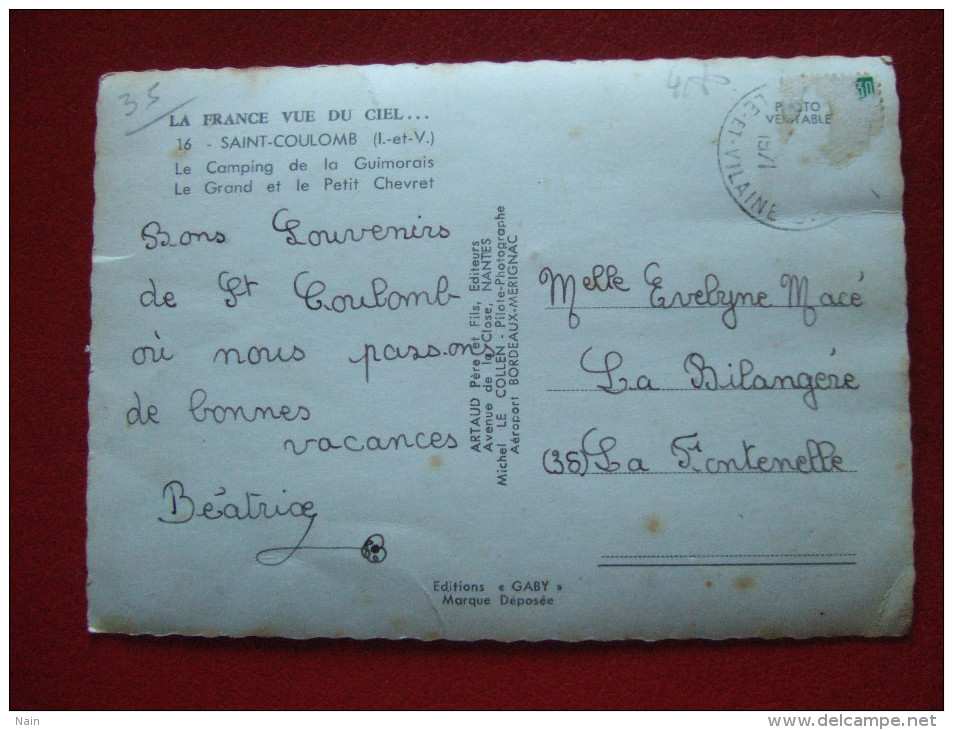 35
LA FRANCE VUE DU CIEL...
16 - SAINT-COULOMB (I.-et-V.)
Le Camping de la Guimorais
Le Grand et le Petit Chevret
Bons Souvenirs
de St Coulomb
où nous passons
de bonnes
vacances
Béatrice
ARTAUD Père et Fils, Editeurs
Avenue de la Close, NANTES
Michel LE COLLEN - Pilote-Photographe
Aéroport BORDEAUX-MERIGNAC
Editions « GABY »
Marque Déposée
30
PHOTO
VERITABLE
LE-ET-VILAINE
1971
Melle Evelyne Macé
La Bilangère
(35) La Fontenelle
Nain
www.delcampe.net